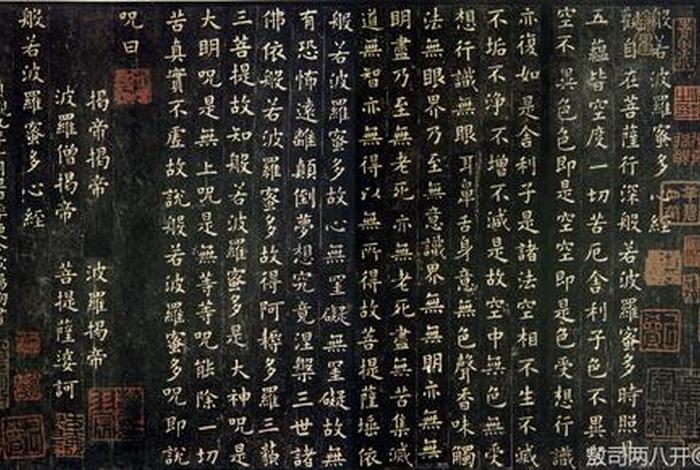 般若波羅蜜多心經
觀自在菩薩行深般若波羅蜜多時照
五蘊皆空度一切苦厄舍利子色不異
空不異色色即是空空即是色受想行識
亦復如是舍利子是諸法空相不生不滅
不垢不淨不增不減是故空中無色無受
想行識無眼耳鼻舌身意無色聲香味觸
法無眼界乃至無意識界無無明亦無無
明盡乃至無老死亦無老死盡無苦集滅
道無智亦無得以無所得故菩提薩埵依
般若波羅蜜多故心無罣礙無罣礙故無
有恐怖遠離顛倒夢想究竟涅槃三世諸
佛依般若波羅蜜多故得阿耨多羅三藐
三菩提故知般若波羅蜜多是大神呪是
大明呪是無上呪是無等等呪能除一切
苦真實不虛故說般若波羅蜜多呪即說
呪曰
揭帝揭帝 波羅揭帝
波羅僧揭帝 菩提薩婆訶
般若波羅蜜多心經